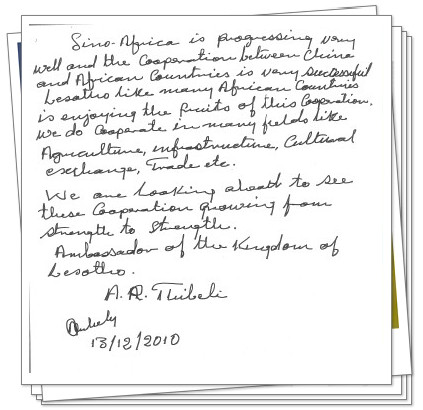 Sino-Africa is progressing very
well and the Cooperation between China
and African Countries is very successful
Lesotho like many African Countries
is enjoying the fruits of this Cooperation.
We do Cooperate in many fields like
Agriculture, infrastructure, Cultural
exchange, Trade etc.
We are looking ahead to see
these Cooperation growing from
strength to Strength.
Ambassador of the Kingdom of
Lesotho.
A. R. Thibeli
13/12/2010